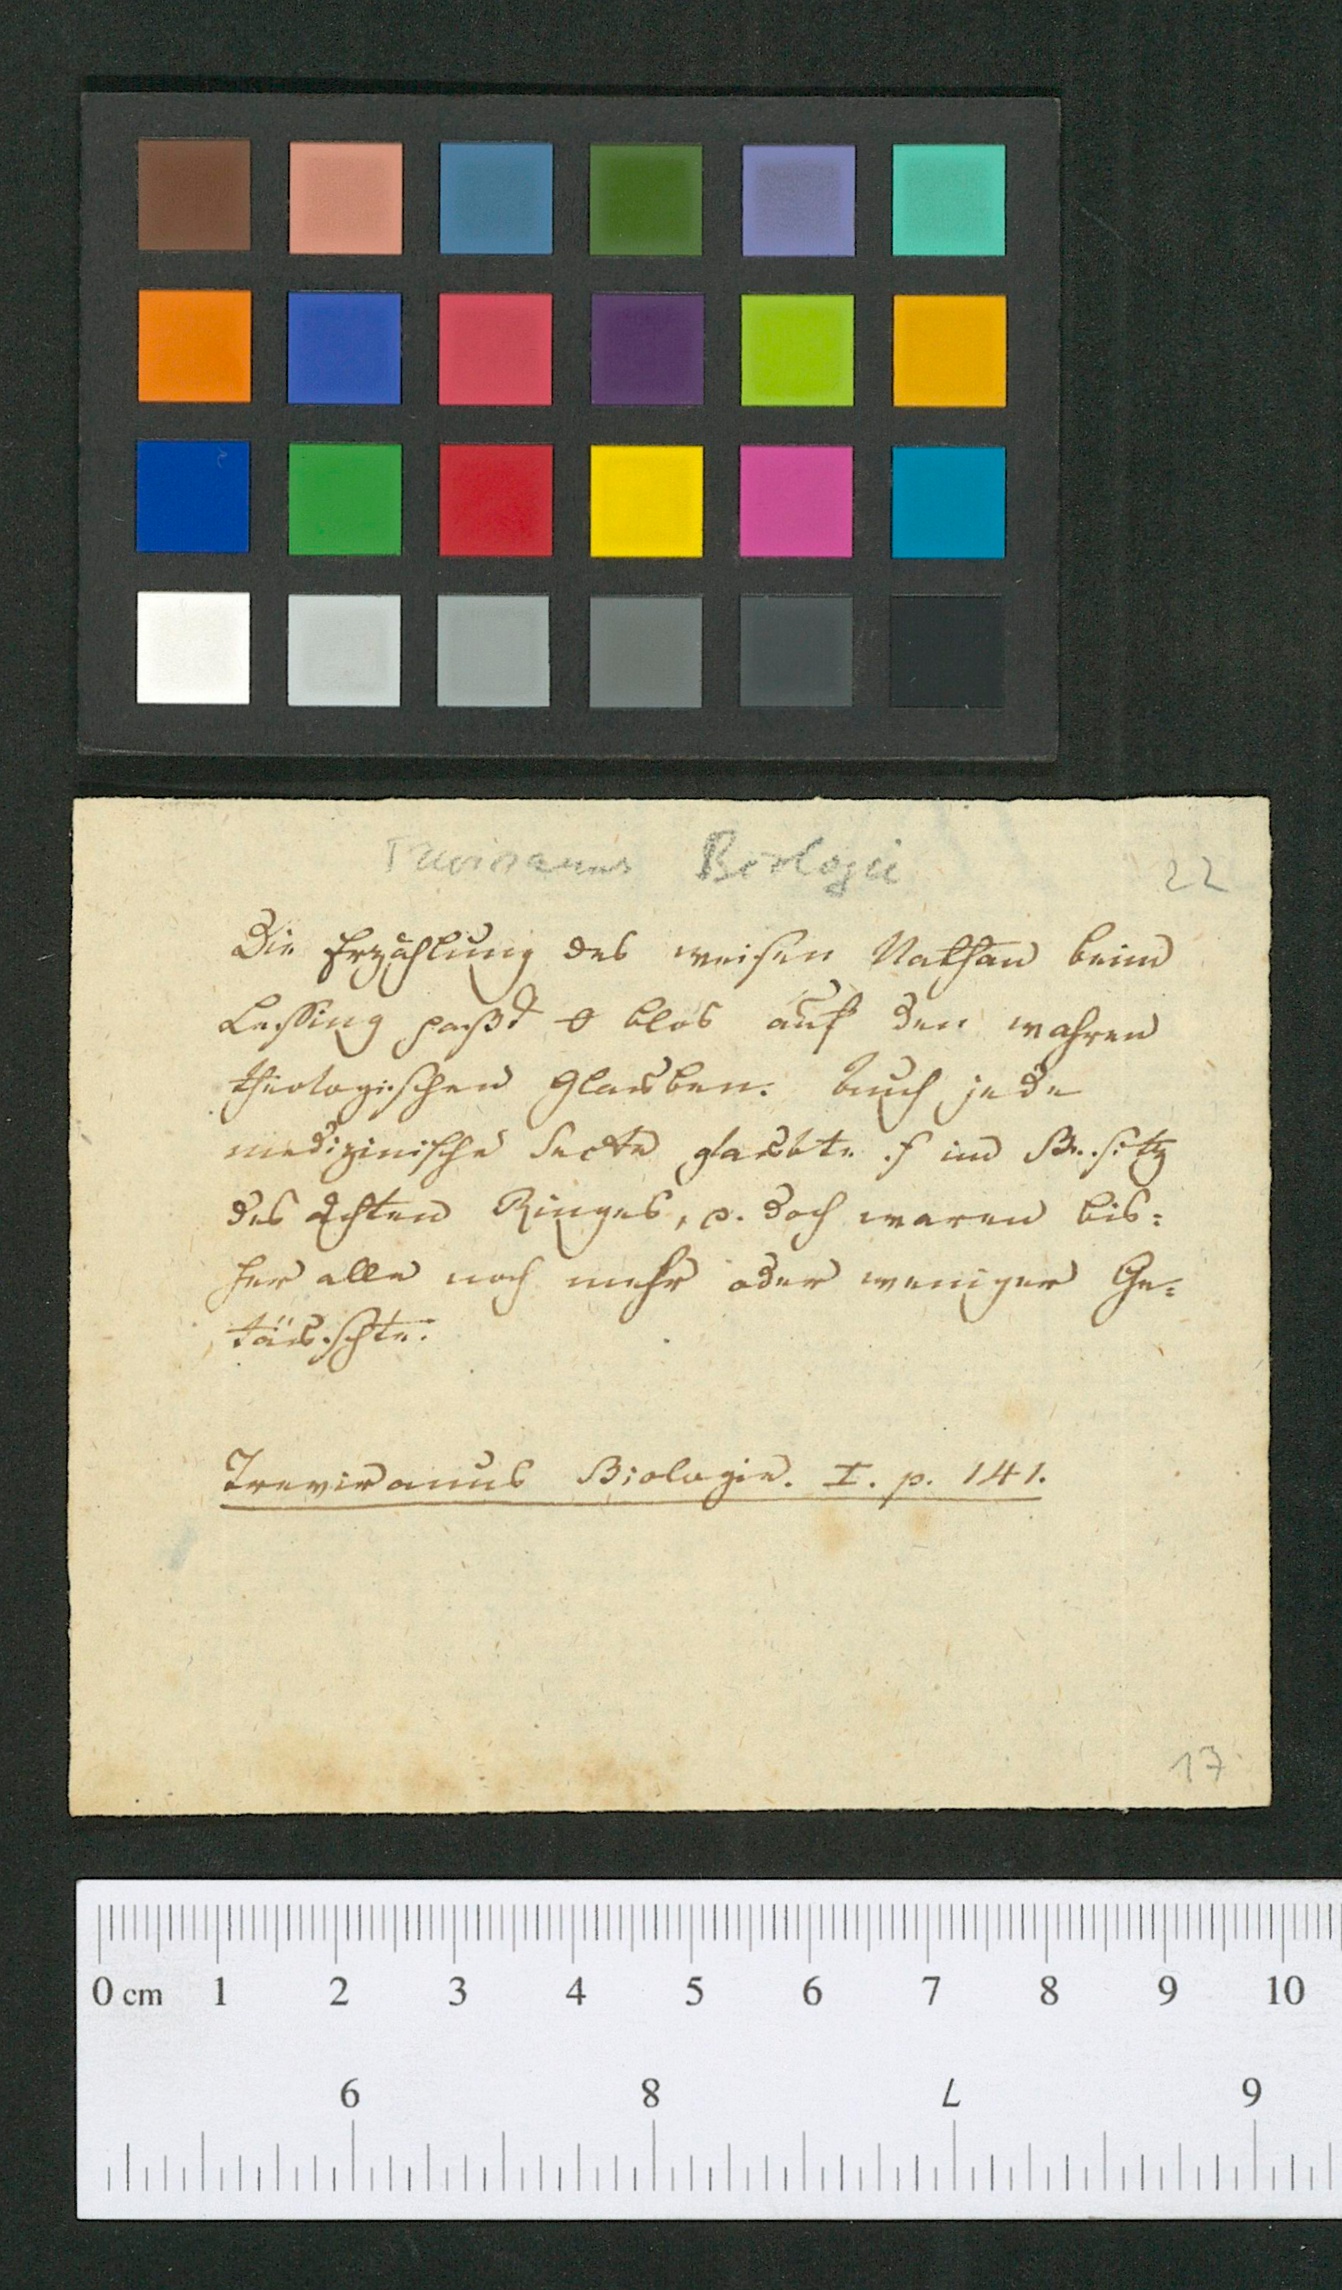 Treviranus Biologie
22
Die Erzählung des weisen Nathan beim
Lessing paßt blos auf den wahren
theologischen Glauben. Auch jede
medizinische Secte glaubte im Besitz
des ächten Ringes, u. doch waren bis=
her alle noch mehr oder weniger Ge=
täuschte.
Treviranus Biologie. I. p. 141.
17
0 cm 1 2 3 4 5 6 7 8 9 10
9 8 7 6